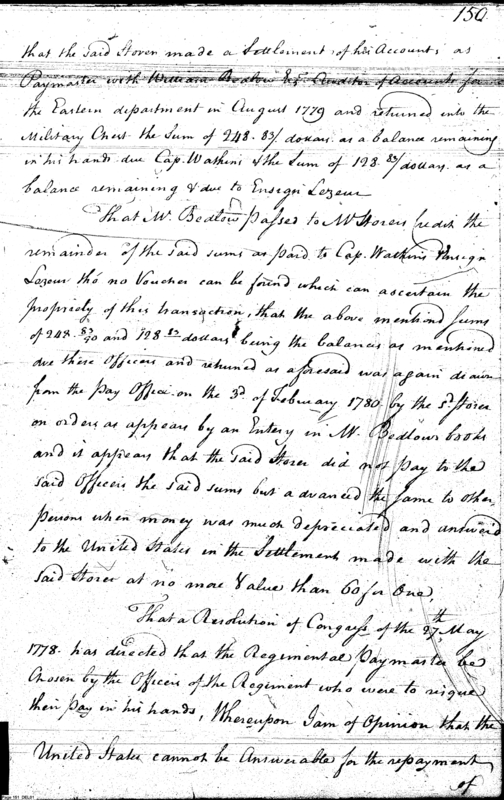 150
that the said Storer made a Settlement of his Accounts as
Paymaster with William Bedlow Esqr. Auditor of Accounts for
the Eastern department in August 1779 and returned into the
Military Chest the Sum of 248. 83/ dollars. as a balance remaining
in his hands due Cap. Watkins & the Sum of 128 83/ dollars. as a
balance remaining & due to Ensign Lezeur
That Mr. Bedlow passed to Mr Storers Credit the
remainder of the said sums as paid to Cap. Watkins & Ensign
Lezeur tho' no Voucher can be found which can ascertain the
propriety of this transaction, that the above mentiond sums
of 248. 83/90 and 128 83 dollars being the balances as mentioned
due these Officers and returned as aforesaid was again drawn
from the Pay Office on the 3d. of February 1780 by the sd. Storer
on orders as appears by an Entery in Mr. Bedlows books
and it appears that the said Storer did not pay to the
said Officers the said sums but advanced the same to other
persons when money was much depreciated and answer'd
to the United States in the Settlement made with the
said Storer at no more Value than 60 for One,
That a Resolution of Congress of the 27th. May
1778. has directed that the Regimental Paymaster be
Chosen by the Officers of the Regiment who were to risque
their Pay in his hands, Whereupon I am of Opinion that the
United States cannot be Answerable for the repayment
of